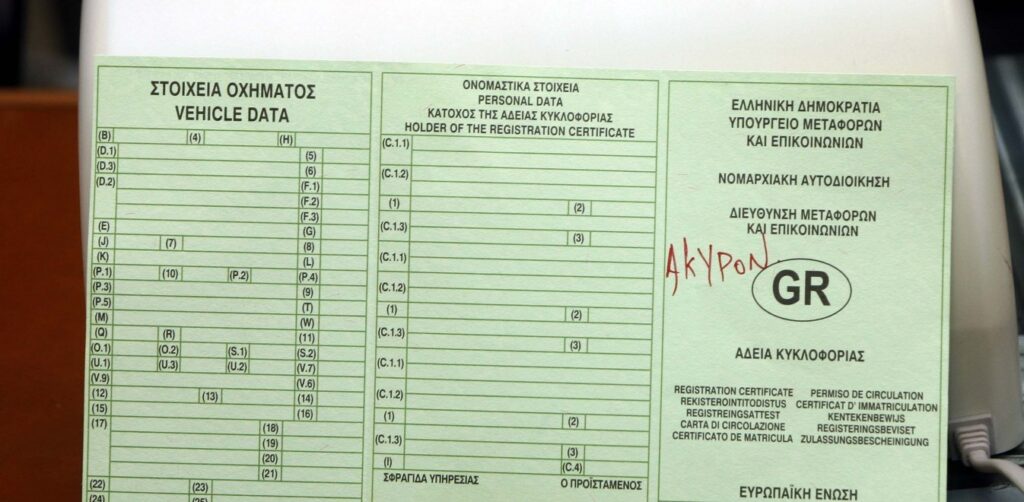 ΣΤΟΙΧΕΙΑ ΟΧΗΜΑΤΟΣ
VEHICLE DATA
(B) (4) (H)
(D.1) (5)
(D.3) (6)
(D.2) (F.1)
(F.2)
(F.3)
(E) (G)
(J) (7) (8)
(K) (L)
(P.1) (10) (P.2) (P.4)
(P.3) (9)
(P.5) (T)
(M) (W)
(Q) (R) (11)
(O.1) (O.2) (S.1) (S.2)
(U.1) (U.3) (U.2) (V.7)
(V.9) (V.6)
(12) (13) (14)
(15) (16)
(17) (18)
(19)
(20)
(21)
(22) (23)
(24) (25)
ΟΝΟΜΑΣΤΙΚΑ ΣΤΟΙΧΕΙΑ
PERSONAL DATA
ΚΑΤΟΧΟΣ ΤΗΣ ΑΔΕΙΑΣ ΚΥΚΛΟΦΟΡΙΑΣ
HOLDER OF THE REGISTRATION CERTIFICATE
(C.1.1)
(C.1.2)
(1) (2)
(C.1.3)
(3)
(C.1.1)
(C.1.2)
(1) (2)
(C.1.3)
(3)
(C.1.1)
(C.1.2)
(1) (2)
(C.1.3)
(3)
(I) (C.4)
ΣΦΡΑΓΙΔΑ ΥΠΗΡΕΣΙΑΣ Ο ΠΡΟΪΣΤΑΜΕΝΟΣ
ΕΛΛΗΝΙΚΗ ΔΗΜΟΚΡΑΤΙΑ
ΥΠΟΥΡΓΕΙΟ ΜΕΤΑΦΟΡΩΝ
ΚΑΙ ΕΠΙΚΟΙΝΩΝΙΩΝ
ΝΟΜΑΡΧΙΑΚΗ ΑΥΤΟΔΙΟΙΚΗΣΗ
ΔΙΕΥΘΥΝΣΗ ΜΕΤΑΦΟΡΩΝ
ΚΑΙ ΕΠΙΚΟΙΝΩΝΙΩΝ
ΑΚΥΡΟΝ
GR
ΑΔΕΙΑ ΚΥΚΛΟΦΟΡΙΑΣ
REGISTRATION CERTIFICATE PERMISO DE CIRCULATION
REKISTEROINTITODISTUS CERTIFICAT D' IMMATRICULATION
REGISTREINGSATTEST KENTEKENBEWIJS
CARTA DI CIRCOLAZIONE REGISTERINGSBEVISET
CERTIFICATO DE MATRICULA ZULASSUNGSBESCHEINIGUNG
ΕΥΡΩΠΑΪΚΗ ΕΝΩΣΗ